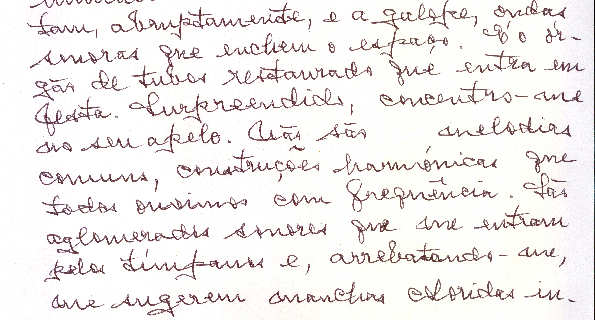 tam, abruptamente, e a galope, ondas
sonoras que enchem o espaço. É o ór-
gão de tubos restaurado que entra em
festa. Surpreendido, concentro-me
no seu apelo. Não são melodias
comuns, construções harmónicas que
todos ouvimos com frequência. São
aglomerados sonoros que me entram
pelos tímpanos e, arrebatando-me,
me sugerem manchas coloridas in-